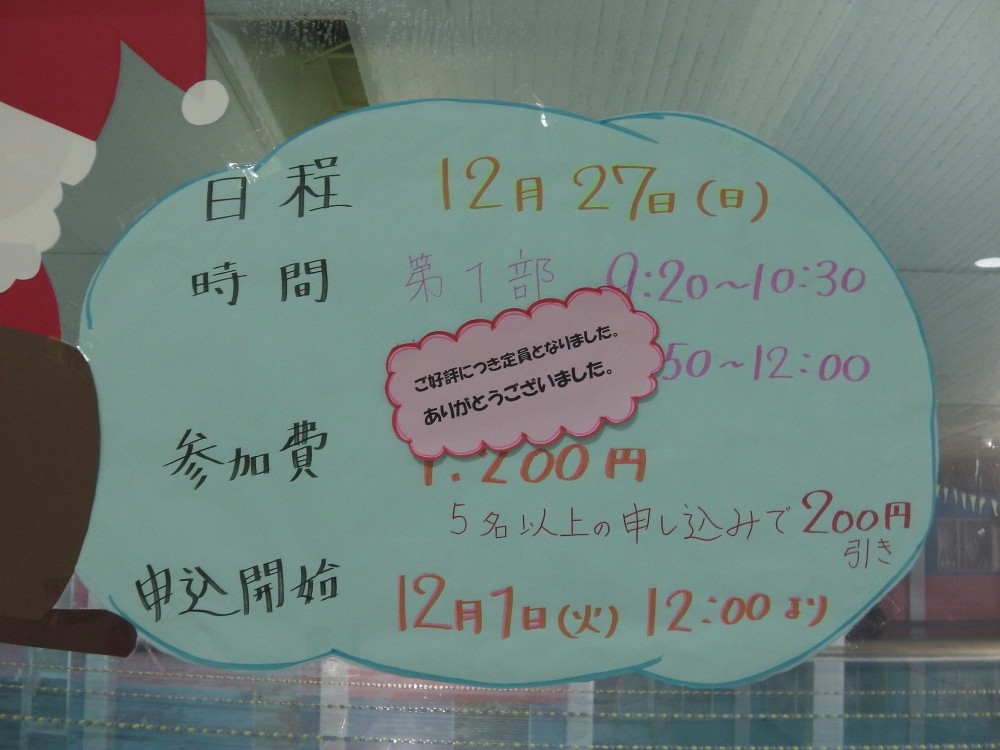 日程 12月27日(日)
時間 第1部 9:20~10:30
ご好評につき定員となりました。
ありがとうございました。
50~12:00
参加費 1.200円
5名以上の申し込みで200円
引き
申込開始 12月1日(火) 12:00より